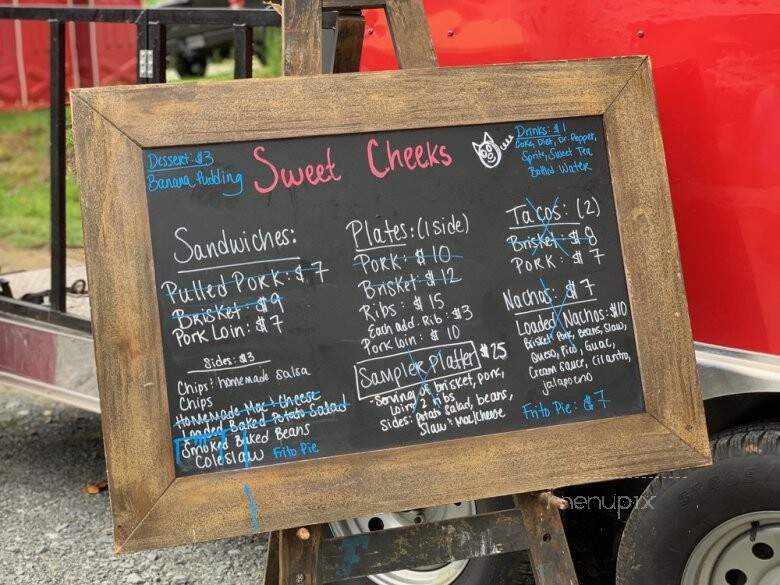 Dessert: $3
Banana Pudding
Sweet Cheeks
Drinks: $1
Coke, Diet, Dr. Pepper,
Sprite, Sweet Tea
Bottled Water
Sandwiches:
Pulled Pork: $7
Brisket: $9
Pork Loin: $7
Sides: $3
Chips: homemade salsa
Chips
Homemade Mac-Cheese
Loaded Baked Potato Salad
Smoked Baked Beans
Coleslaw
Frito Pie
Plates: (1 side)
Pork: $10
Brisket: $12
Ribs: $15
Each add. Rib: $3
Pork loin: $10
Sampler Platter $25
-Serving of brisket, pork,
loin, 2 ribs
sides: Potato Salad, beans,
Slaw & Mac/cheese
Tacos: (2)
Brisket: $8
Pork: $7
Nachos: $7
Loaded Nachos: $10
Brisket, Pork, Beans, Slaw,
Queso, Pico, Guac,
Cream sauce, cilantro,
jalapeno
Frito Pie: $7
menupix